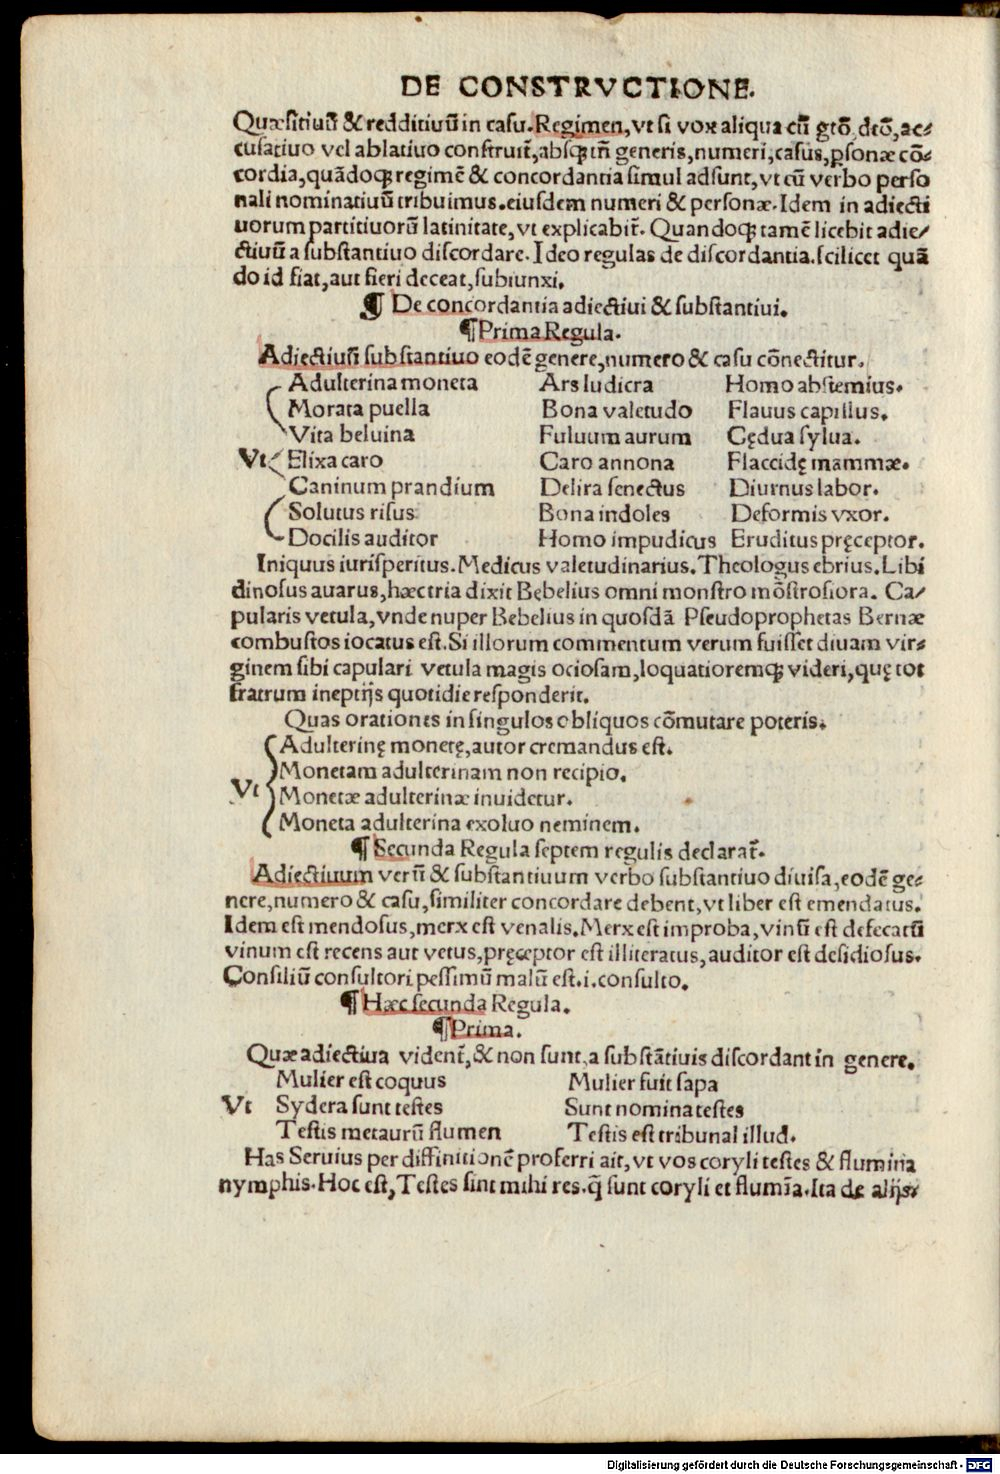 DE CONSTRVCTIONE.
Quæsitiuū & redditiuū in casu. Regimen, vt si vox aliqua cū gtō, dtō, ac⸗
cusatiuo vel ablatiuo construit̄, absqꝫ tñ generis, numeri, casus, ꝑsonæ cō⸗
cordia, quādoqꝫ regimē & concordantia simul adsunt, vt cū verbo perso
nali nominatiuū tribuimus. eiusdem numeri & personæ. Idem in adiecti
uorum partitiuorū latinitate, vt explicabit̄. Quandoqꝫ tamē licebit adie/
ctiuū a substantiuo discordare. Ideo regulas de discordantia. scilicet quā
do id fiat, aut fieri deceat, subiunxi.
¶ De concordantia adiectiui & substantiui.
¶Prima Regula.
Adiectiuū substantiuo eodē genere, numero & casu cōnectitur.
Adulterina moneta Ars ludicra Homo abstemius.
Morata puella Bona valetudo Flauus capillus.
Vita beluina Fuluum aurum Cędua sylua.
Vt Elixa caro Caro annona Flaccidę mammæ.
Caninum prandium Delira senectus Diurnus labor.
Solutus risus Bona indoles Deformis vxor.
Docilis auditor Homo impudicus Eruditus pręceptor.
Iniquus iurisperitus. Medicus valetudinarius. Theologus ebrius. Libi
dinosus auarus, hæc tria dixit Bebelius omni monstro mōstrosiora. Ca/
pularis vetula, vnde nuper Bebelius in quosdā Pseudoprophetas Bernæ
combustos iocatus est. Si illorum commentum verum fuisset diuam vir⸗
ginem sibi capulari vetula magis ociosam, loquatioremqꝫ videri, quę tot
fratrum ineptijs quotidie responderit.
Quas orationes in singulos obliquos cōmutare poteris.
Adulterinę monetę, autor cremandus est.
Monetam adulterinam non recipio.
Vt Monetæ adulterinæ inuidetur.
Moneta adulterina exoluo neminem.
¶ Secunda Regula septem regulis declarat̄.
Adiectiuum verū & substantiuum verbo substantiuo diuisa, eodē ge⸗
nere, numero & casu, similiter concordare debent, vt liber est emendatus.
Idem est mendosus, merx est venalis. Merx est improba, vinū est defecatū
vinum est recens aut vetus, pręceptor est illiteratus, auditor est desidiosus.
Consiliū consultori pessimū malū est. i. consulto.
¶ Hæc secunda Regula.
¶Prima.
Quæ adiectiua vident̄, & non sunt, a substātiuis discordant in genere.
Mulier est coquus Mulier fuit sapa
Vt Sydera sunt testes Sunt nomina testes
Testis metaurū flumen Testis est tribunal illud.
Has Seruius per diffinitionē proferri ait, vt vos coryli testes & flumina
nymphis. Hoc est, Testes sint mihi res. q̄ sunt coryli et flumīa. Ita de alijs⸗
Digitalisierung gefördert durch die Deutsche Forschungsgemeinschaft - DFG